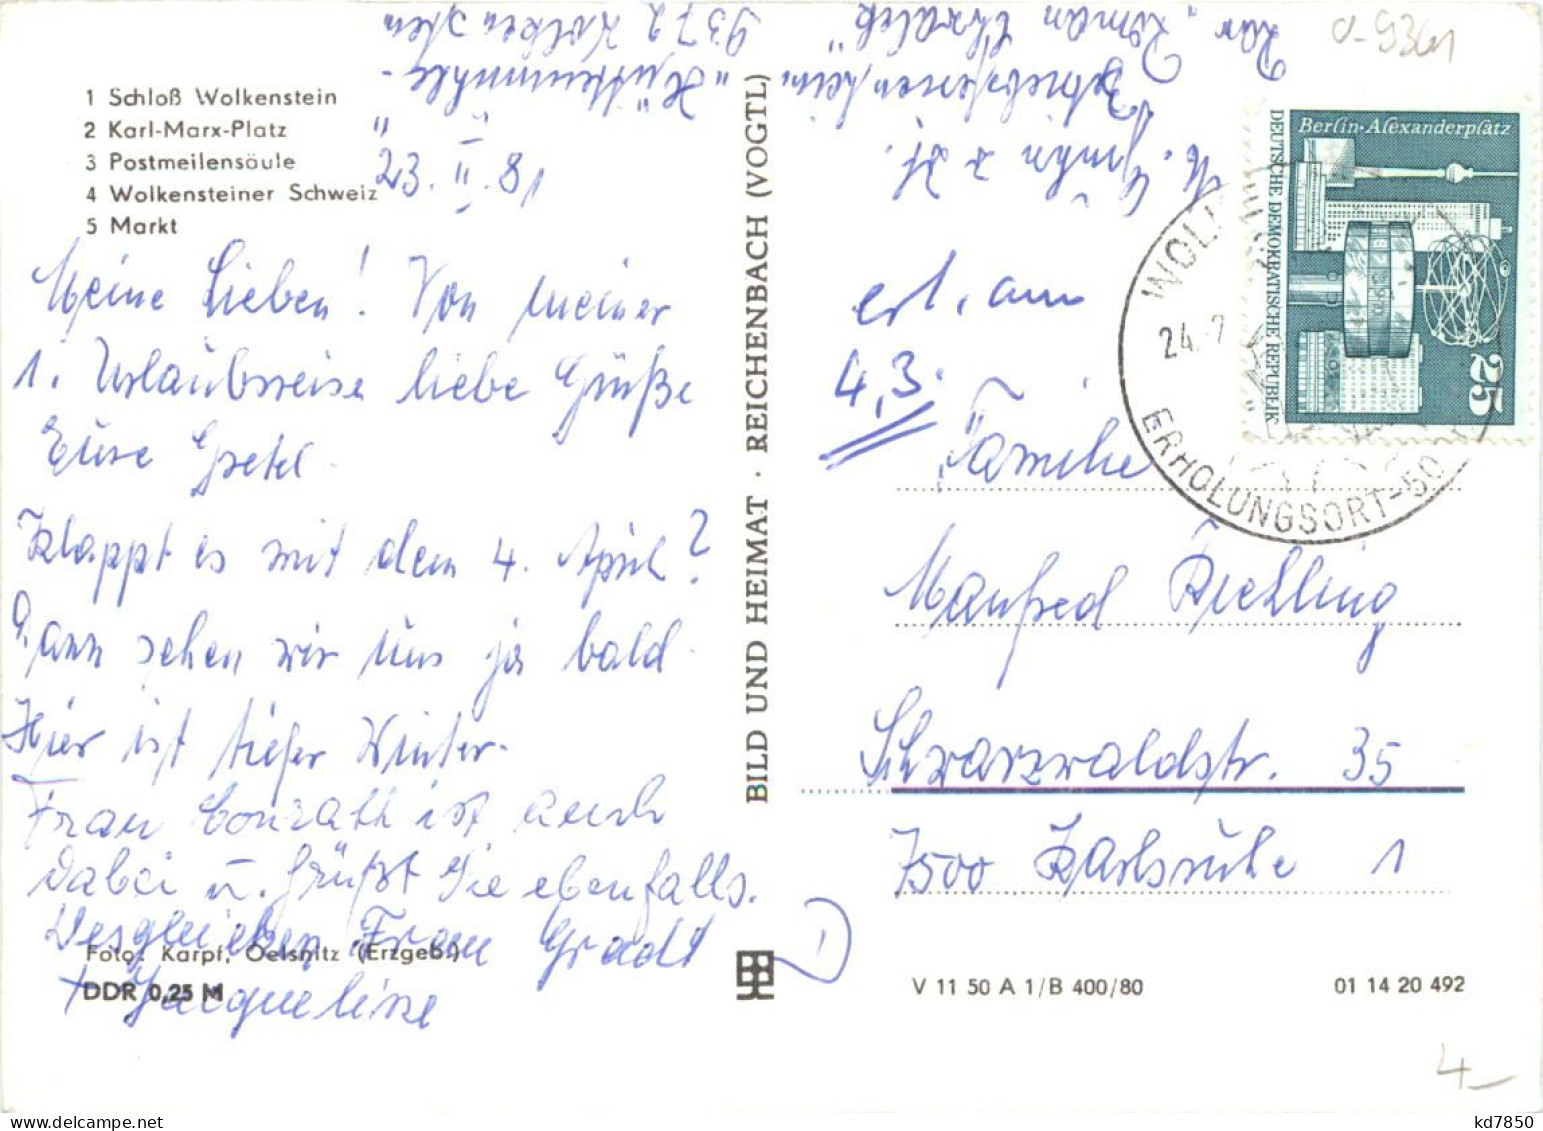 1 Schloß Wolkenstein
2 Karl-Marx-Platz
3 Postmeilensäule
4 Wolkensteiner Schweiz
5 Markt
23. II. 81
Meine Lieben! Von meiner
1. Urlaubsreise liebe Grüße
Eure Gretel.
Klappt es mit dem 4. April?
Dann sehen wir uns ja bald.
Hier ist tiefer Winter.
Frau Conrath ist auch
dabei u. grüßt Sie ebenfalls.
Desgleichen Frau Gradt
+ Jacqueline
Foto: Karpf, Oelsnitz (Erzgeb.)
DDR 0,25 M
BILD UND HEIMAT · REICHENBACH (VOGTL)
z. Zt.
Betriebsferienheim
"Hüttenmühle"
9372 Wolkenstein
0-9361
Berlin-Alexanderplatz
DEUTSCHE DEMOKRATISCHE REPUBLIK
25
WOL
24. 2
ERHOLUNGSORT-50
erl. am
4,3.
Familie
Manfred Riehling
Schwarzwaldstr. 35
7500 Karlsruhe 1
D
V 11 50 A 1/B 400/80
01 14 20 492
4,-
kd7850